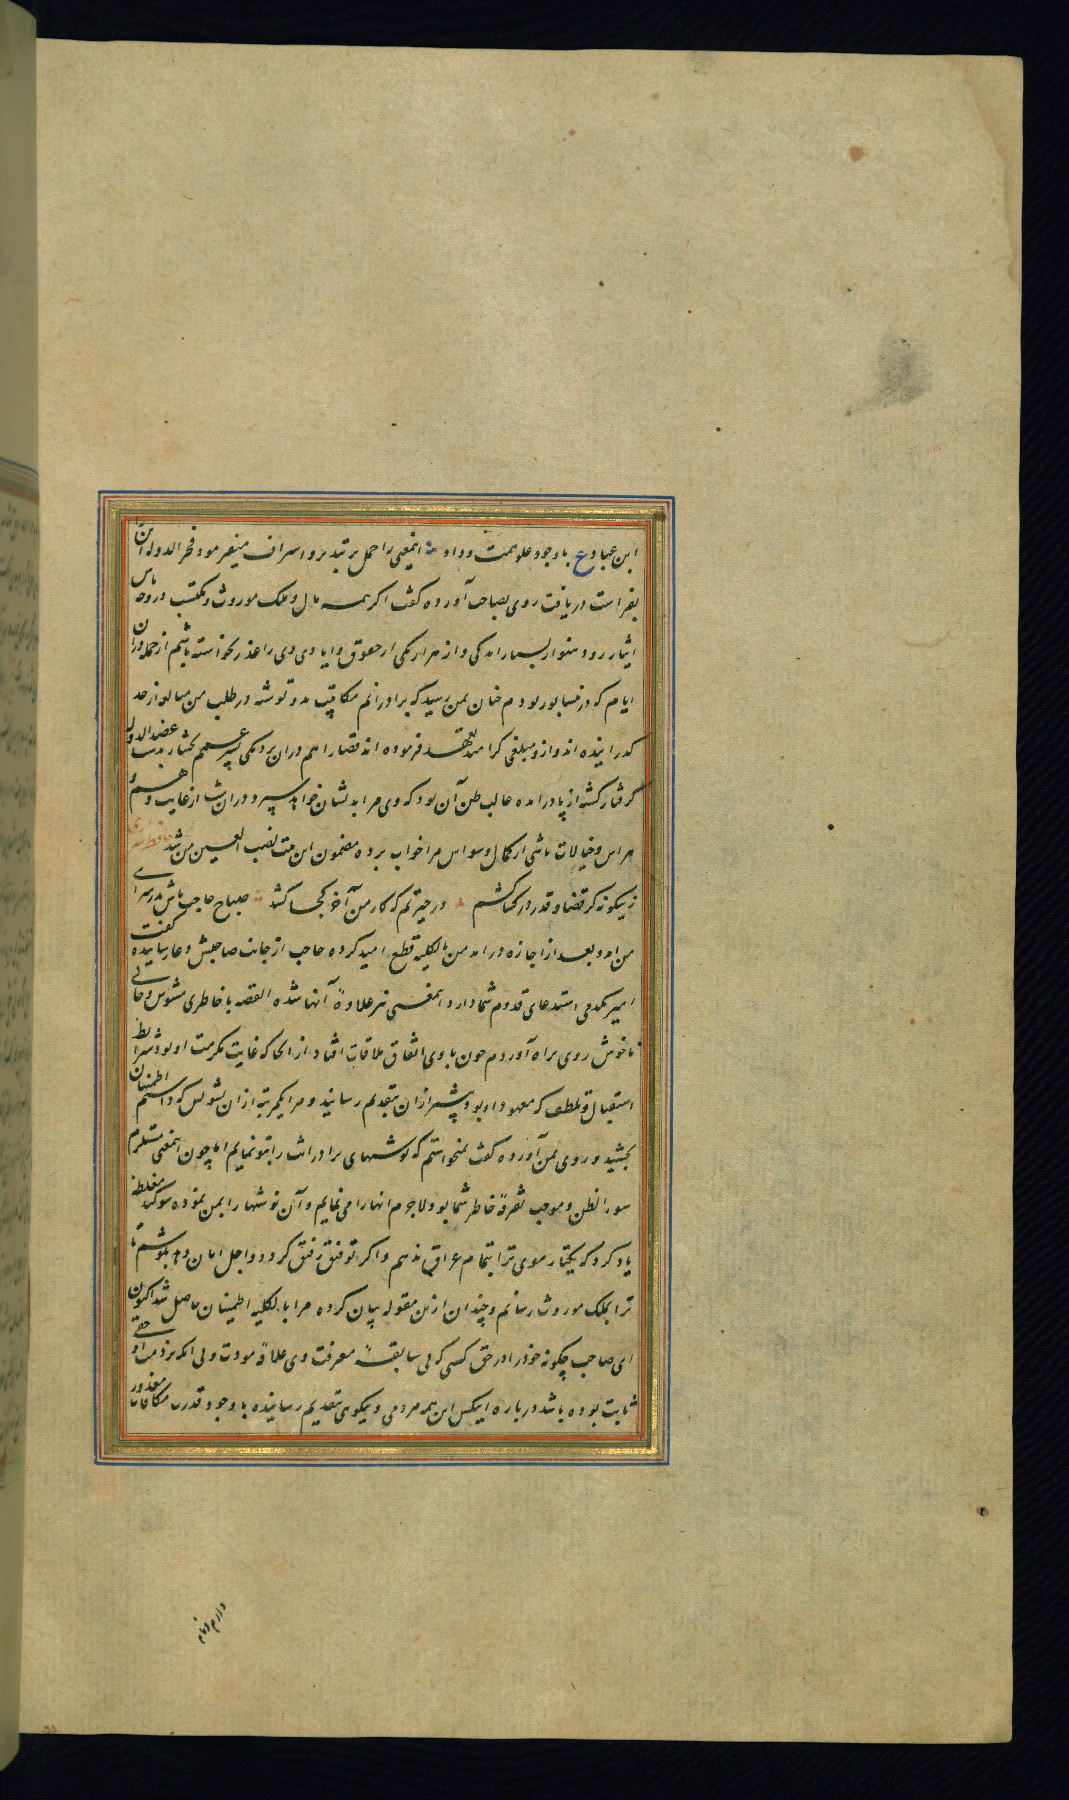 ابن عباد ع با وجود علو همت و داد اینمعنی را حمل بر تبذیر و اسراف میفرمود فخر الدوله این
بفراست دریافت روی بصاحب آورده گفت اگر همه مال و ملک موروث و مکتسب در وجه
ایثار رود هنوز از بسیار اندکی و از هزار یکی از حقوق و ایادی وی را عذر نخواسته باشم از جمله در ان
ایام که در نیسابور بودم چنان بمن رسید که برادرانم مکاتیب بدو نوشته در طلب من مبالغه از حد
گذرانیده اند و ازو مبلغی کرامند تعهد فرموده اند قضا را هم در ان نزدیکی پسر عمم بختیار بدست عضد الدوله
گرفتار گشته از پا در امده غالب ظن آن بود که وی مرا بدیشان خواهد سپرد در ان شب از غایت وهم و
هراس و خیالات ناشی از کمال وسواس مرا خواب برده مضمون این بیت نصب العین من شد
زینگونه کز قضا و قدر در کشاکشم در حیرتم که کار من آخر کجا کشد صباح حاجب تاش بدر سرای
من امد و بعد از اجازه در امد من بالکلیه قطع امید کرده حاجب از جانب صاحبش دعا رسانیده گفت
امیر بکدمی استدعای قدوم شما دارد اینمعنی نیز علاوهٔ آنها شده القصه با خاطری مشوش و حالی
ناخوش روی براه آوردم چون با وی اتفاق ملاقات افتاد از انجا که غایت مکرمت او بود شرایط
استقبال و تلطف که معهود او بود بیشتر از ان بتقدیم رسانید و مرا یکمرتبه از ان تشویش که داشتم اطمینان
بخشید و روی بمن آورده گفت نمیخواستم که نوشتهای برادرانت را بتو نمایم اما چون اینمعنی مستلزم
سوء الظن و موجب تفرقهٔ خاطر شما بود لاجرم انها را می نمایم و آن نوشتها را بمن نموده سوگند مغلظه
یاد کرد که یکتار موی ترا بتمام عراق ندهم و اگر توفیق رفیق گردد و اجل امان دهد بکوشم تا
ترا بملک موروث رسانم و چندان ازین مقوله بیان کرده مرا بالکلیه اطمینان حاصل شد اکنون
ای صاحب چگونه خود را در حق کسی که بی سابقهٔ معرفت و بی علاقهٔ مودت و بی انکه بر ذمت او حقی
ثابت بوده باشد درباره اینکس این همه مردمی و نیکویی بتقدیم رسانیده با وجود قدرت مکافات معذور
دارم و نام